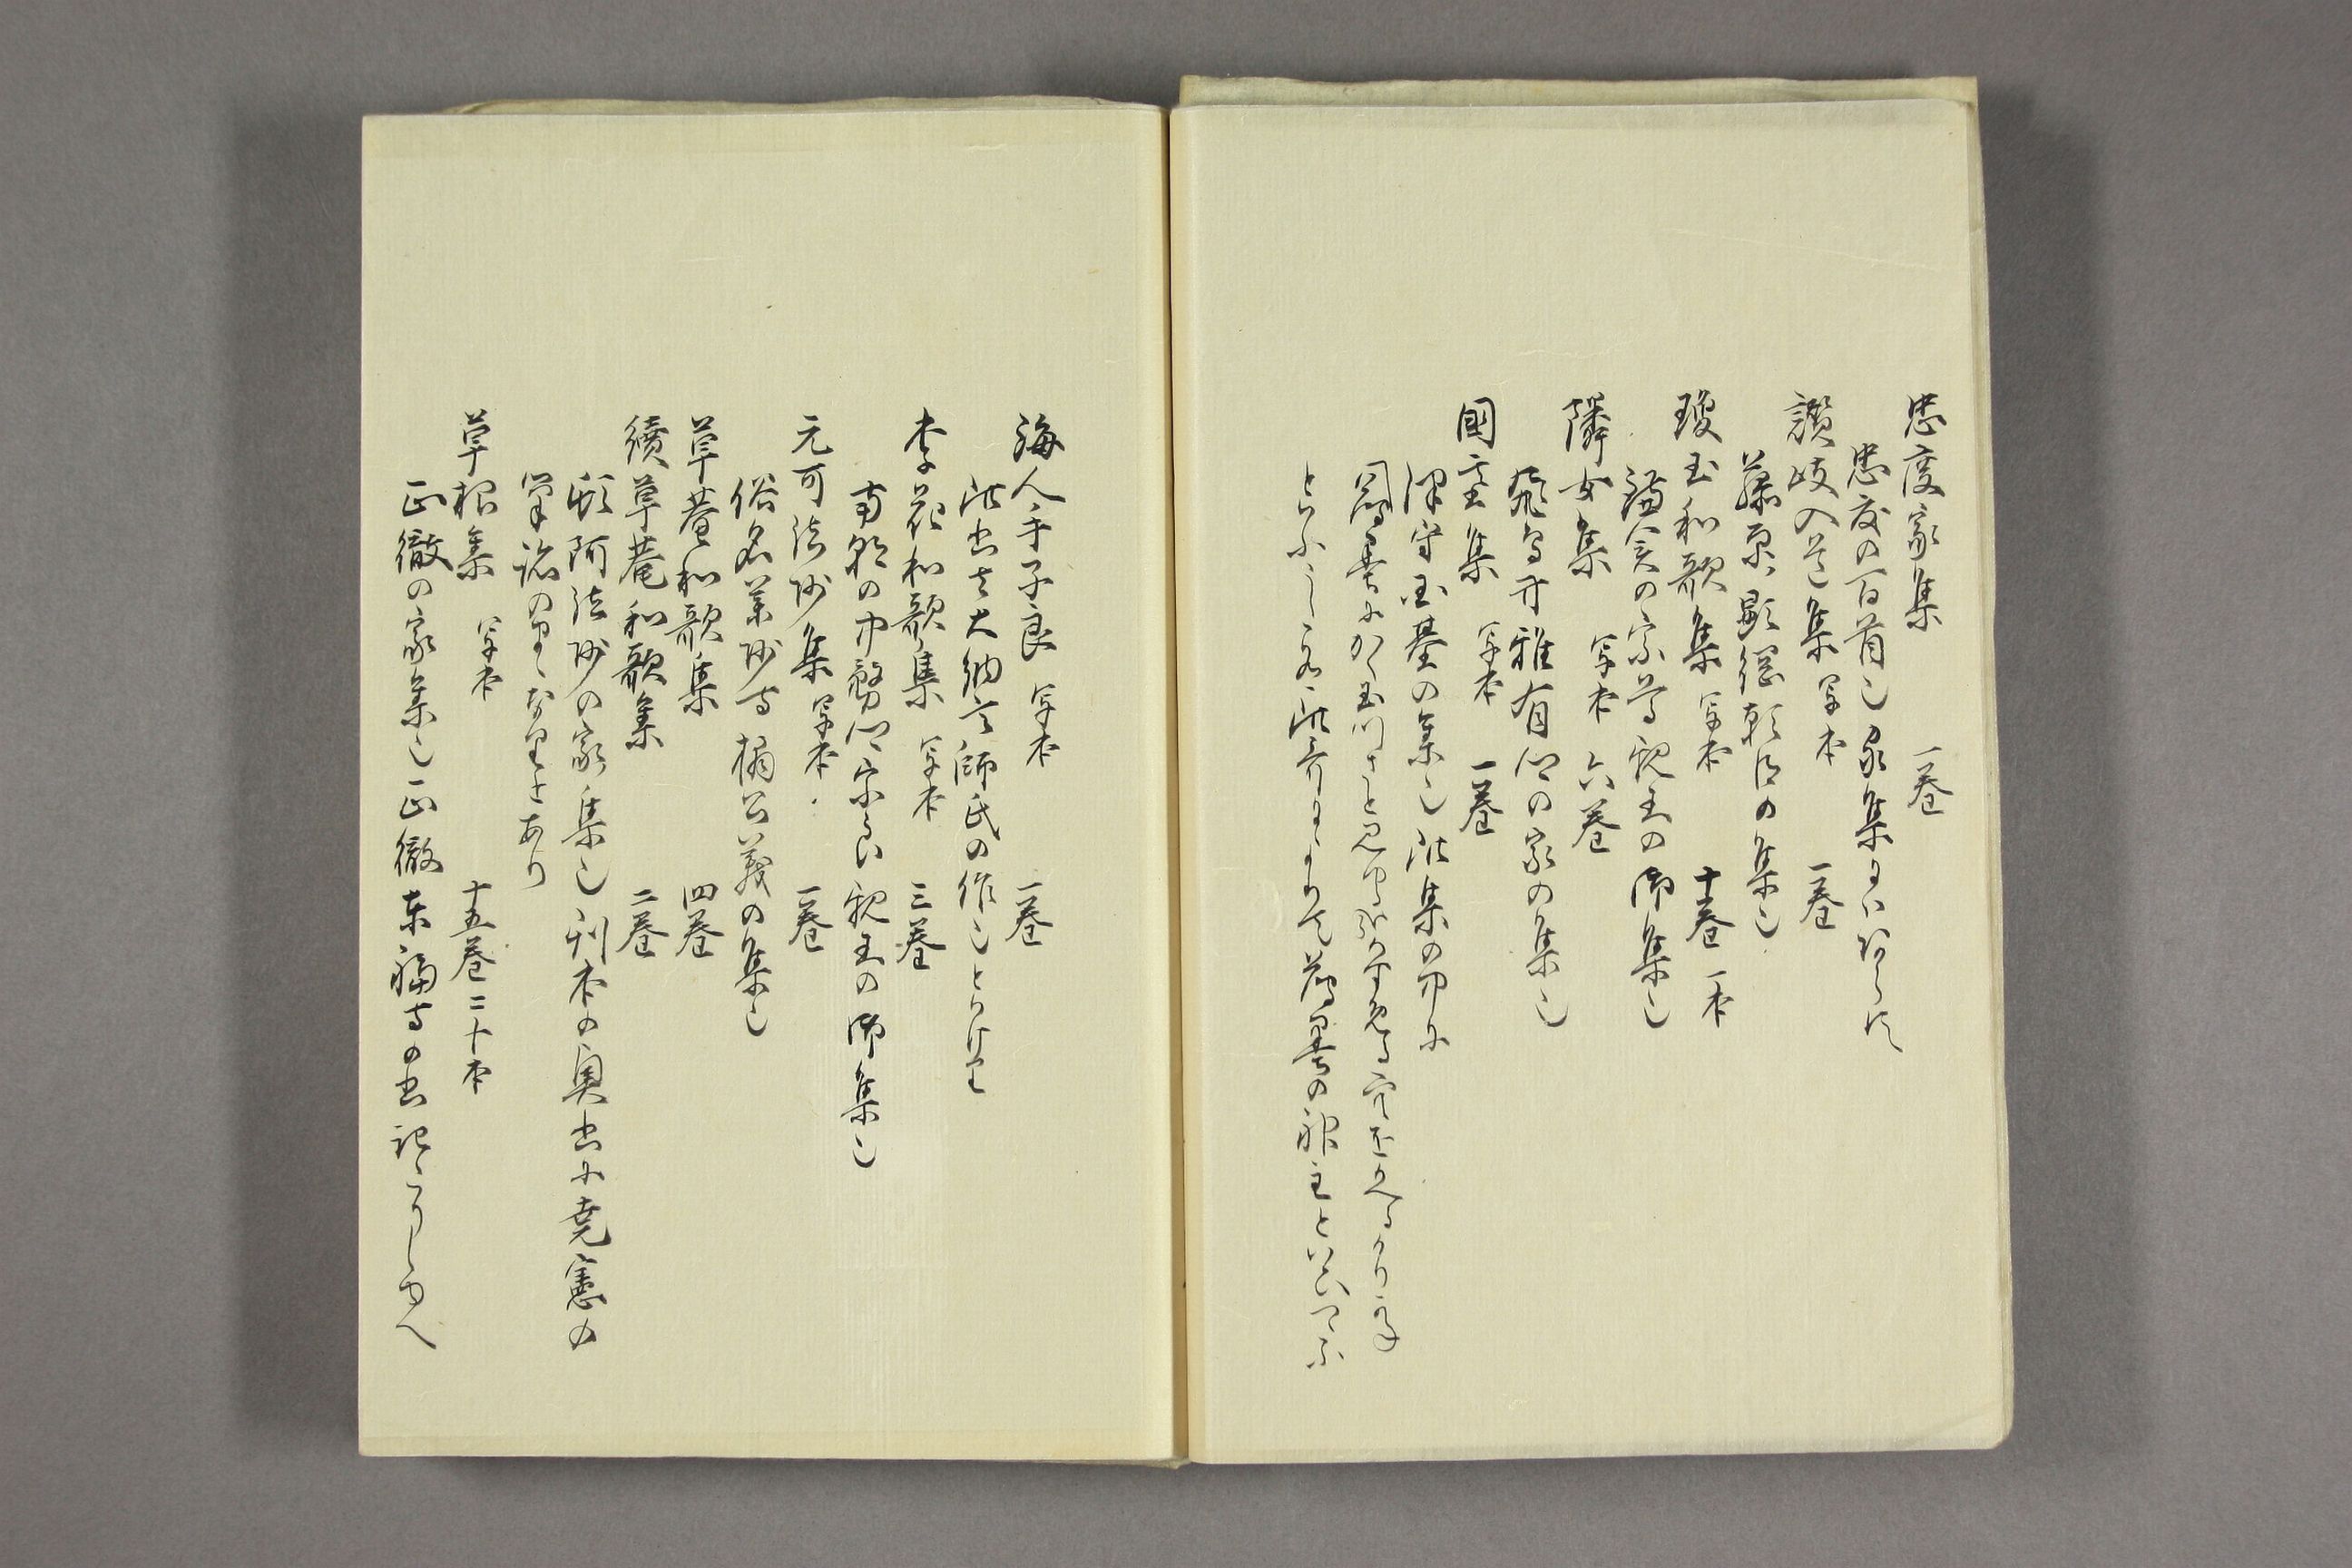 忠度家集 一巻
忠度の百首也家集にはあらす
讃岐入道集 写本 一巻
藤原顕綱朝臣の集也
瓊玉和歌集 写本 十巻 一本
鎌倉の宗尊親王の御集也
隣女集 写本 六巻
飛鳥井雅有卿の家の集也
國基集 写本 一巻
津守国基の集也此集の中に
薄墨にかく玉川さと見ゆる
此哥によりて薄墨の神主といひつたふ
海人手子良 写本 一巻
此書は大納言師氏の作也とそ
李花和歌集 写本 三巻
南朝の中務卿宗良親王の御集也
元可法師集 写本 一巻
俗名薬師寺橘公義の集也
草菴和歌集 四巻
續草菴和歌集 二巻
頓阿法師の家集也刊本の奥書に尭憲の
筆跡のよしなりとあり
草根集 写本 十五巻 二十本
正徹の家集也正徹東福寺の書記たりしゆへ